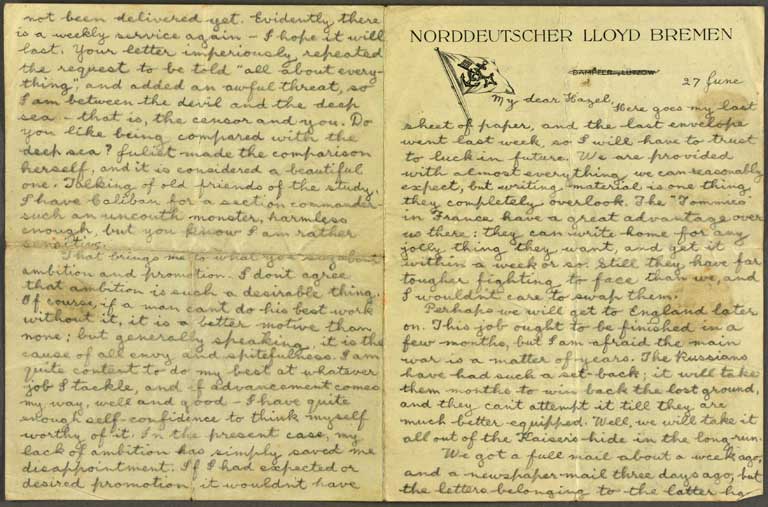 NORDDEUTSCHER LLOYD BREMEN
DAMPFER "LÜTZOW"
27 June
My dear Hazel,
Here goes my last
sheet of paper, and the last envelope
went last week, so I will have to trust
to luck in future. We are provided
with almost everything we can reasonably
expect, but writing-material is one thing
they completely overlook. The "Tommies"
in France have a great advantage over
us there: they can write home for any
jolly thing they want, and get it
within a week or so. Still they have far
tougher fighting to face than we, and
I wouldn't care to swap them.
Perhaps we will get to England later
on. This job ought to be finished in a
few months, but I am afraid the main
war is a matter of years. The Russians
have had such a set-back; it will take
them months to win back the lost ground,
and they can't attempt it till they are
much better equipped. Well, we will take it
all out of the Kaiser's hide in the long run.
We got a full mail about a week ago,
and a newspaper mail three days ago, but
the letters belonging to the latter ha
not been delivered yet. Evidently there
is a weekly service again - I hope it will
last. Your letter imperiously repeated
the request to be told "all about every-
thing", and added an awful threat, so
I am between the devil and the deep
sea - that is, the censor and you. Do
you like being compared with the
deep sea? Juliet made the comparison
herself, and it is considered a beautiful
one. Talking of old friends of the study,
I have Caliban for a section commander -
such an uncouth monster, harmless
enough, but you know I am rather
sensitive.
That brings me to what you say about
ambition and promotion. I don't agree
that ambition is such a desirable thing.
Of course, if a man can't do his best work
without it, it is a better motive than
none; but generally speaking, it is the
cause of all envy and spitefulness. I am
quite content to do my best at whatever
job I tackle, and if advancement comes
my way, well and good - I have quite
enough self-confidence to think myself
worthy of it. In the present case, my
lack of ambition has simply saved me
disappointment. If I had expected or
desired promotion, it wouldn't have